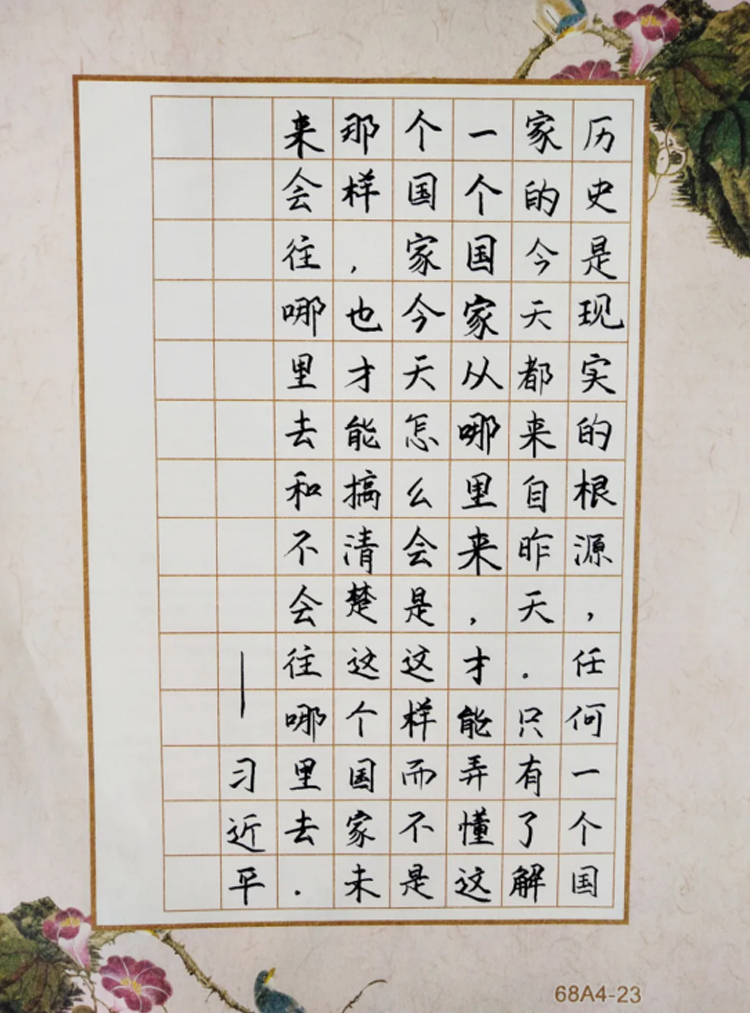 历史是现实的根源，任何一个国
家的今天都来自昨天.只有了解
一个国家从哪里来，才能弄懂这
个国家今天怎么会是这样而不是
那样，也才能搞清楚这个国家未
来会往哪里去和不会往哪里去.
——习近平
68A4-23